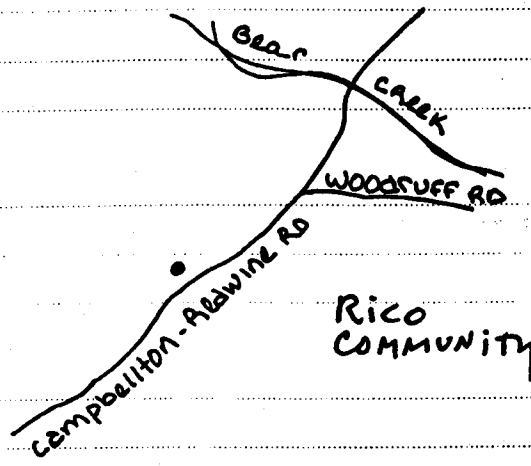 Bear
CREEK
WOODRUFF RD
Campbellton-Redwine RD
Rico
COMMUNITY